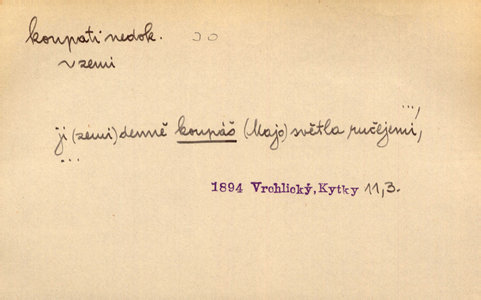 koupati nedok.
v zemi
...,
ji (zemi) denně koupáš (Májo) světla ručejemi,
...
1894 Vrchlický, Kytky 11,3.